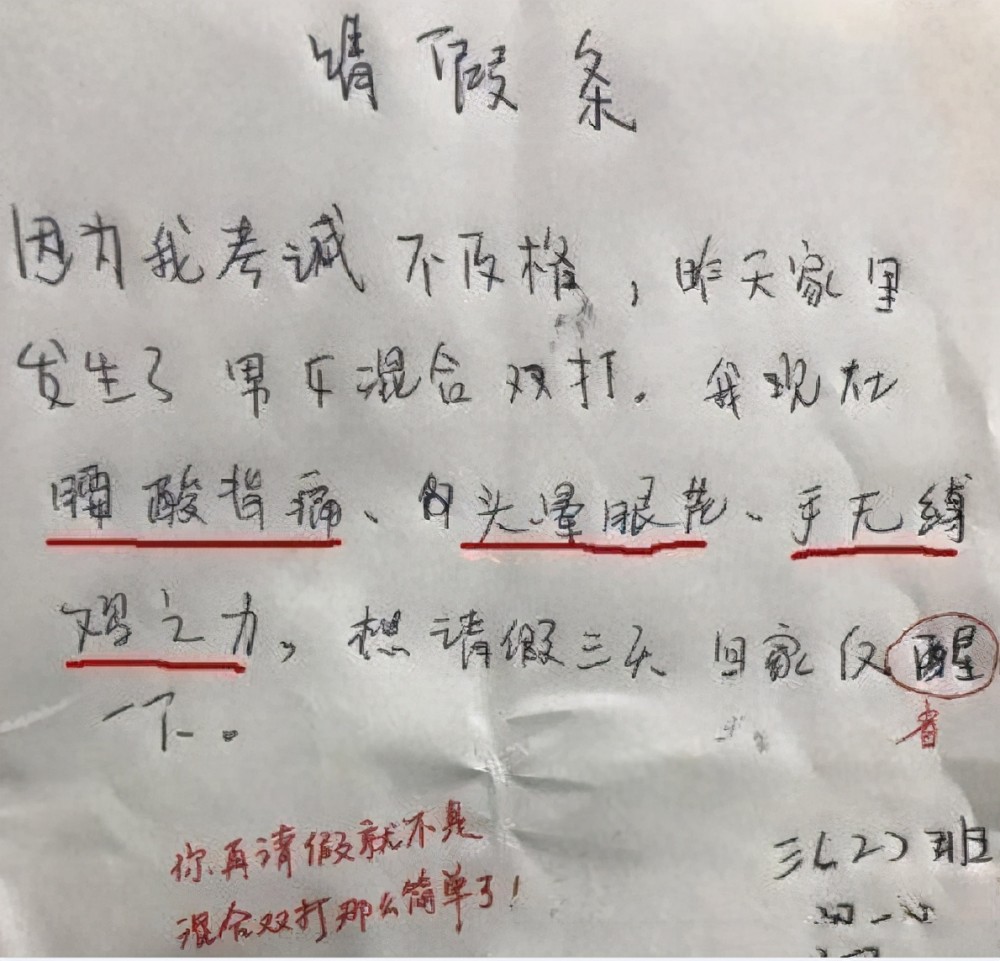 请假条
因为我考诚不及格，昨天家里
发生了男女混合双打。我现在
腰酸背痛、头晕眼花、手无缚
鸡之力，想请假三天回家反醒
一下。
省
你再请假就不是
混合双打那么简单了！
三（2）班